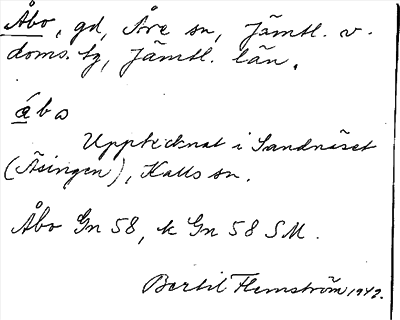 Åbo, gd, Åre sn, Jämtl. v.
doms. tg, Jämtl. län.
ɑ́bɷ
Upptecknat i Sandnäset
(Äsingen), Kalls sn.
Åbo Gn 58, k Gn 58 SM.
Bertil Flemström 1942.